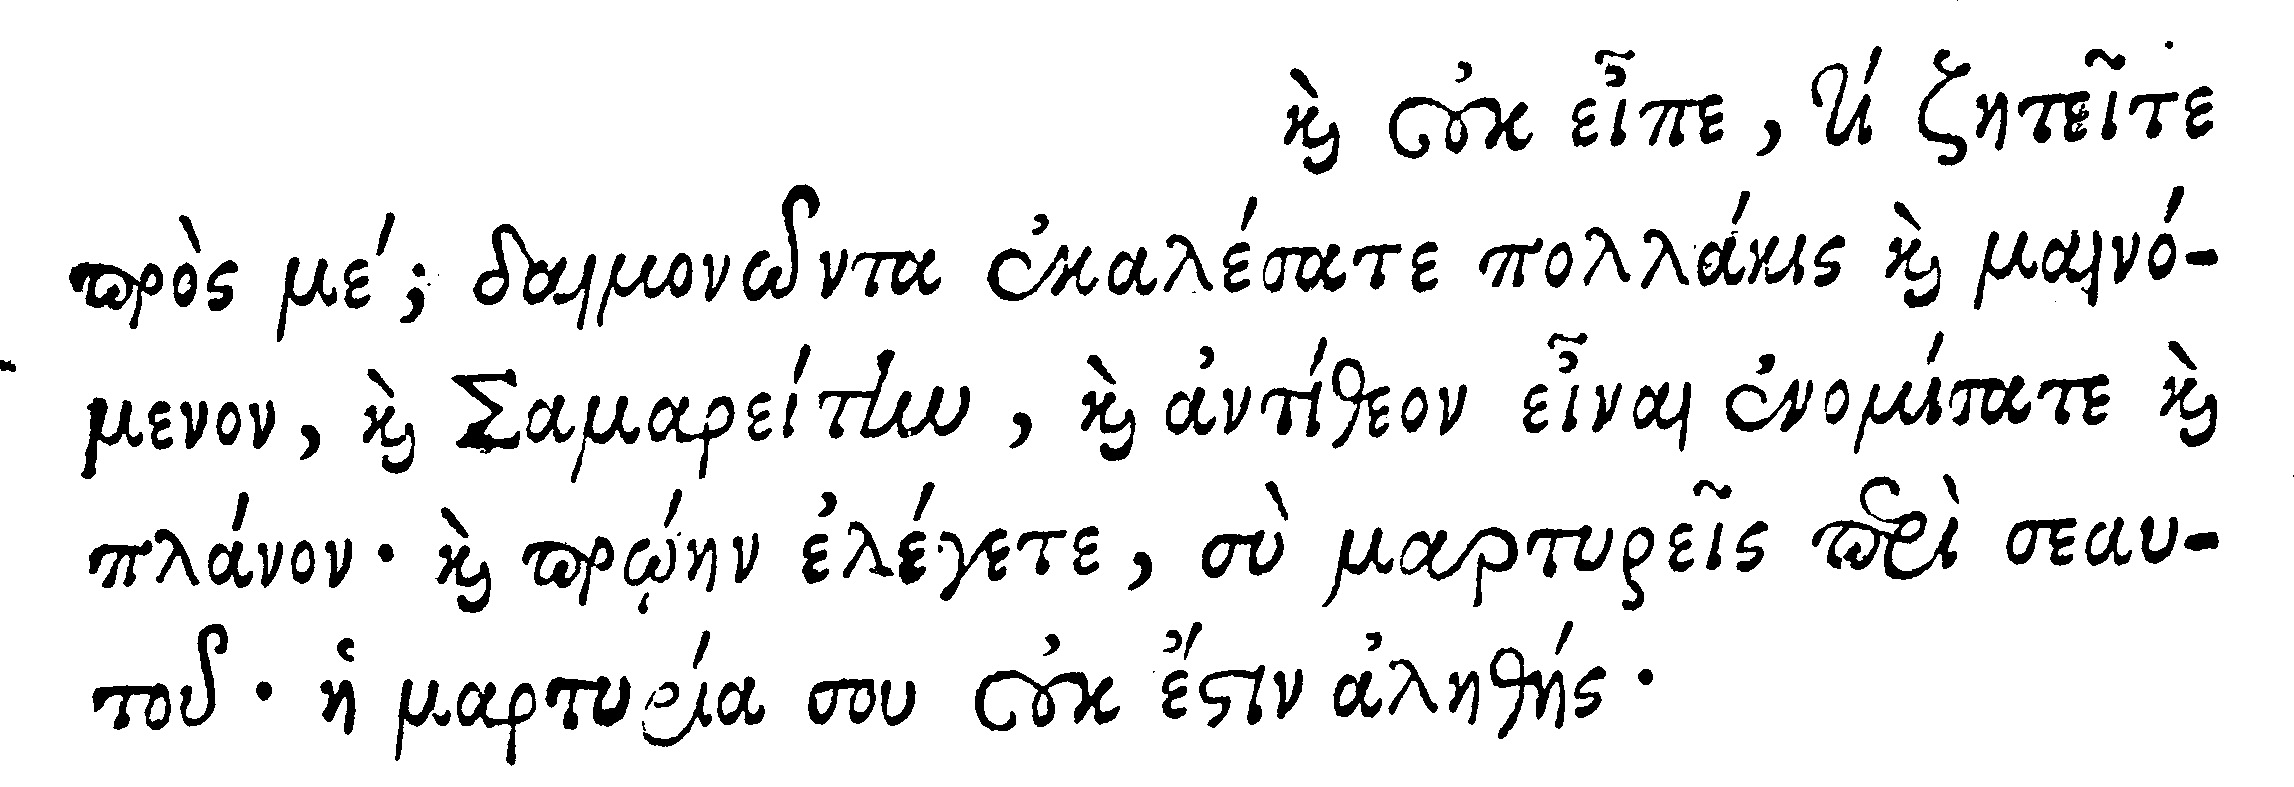 καὶ οὐκ εἶπε, τί ζητεῖτε
πρὸς μέ; δαιμονῶντα ἐκαλέσατε πολλάκις καὶ μαινό-
μενον, καὶ Σαμαρείτην, καὶ ἀντίθεον εἶναι ἐνομίσατε καὶ
πλάνον· καὶ πρῴην ἐλέγετε, σὺ μαρτυρεῖς περὶ σεαυ-
τοῦ· ἡ μαρτυρία σου οὐκ ἔστιν ἀληθής·